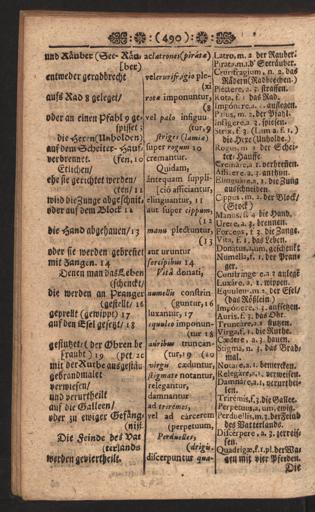 (490)
und Räuber (See-Räu,
ber)
entweder gerädbrecht
aufs Rad 8 geleget/
oder an einen Pfahl 9 ge-
spisset:
die Heren (Unholden)
auf dem Scheiter-Hauf.
verbrennet. (ten, 10
Etlichen/
ehe sie gerichtet werden/
(ten/ 11
wird die Zunge abgeschnit.
oder auf dem Block 12
die Hand abgehauen/ 13
oder sie werden gebrennet
mit Zangen. 14
Denen man das Leben
(schencket/
die werden an Pranger
(gestellt/ 16
geprellt (gewippt) 17
auf den Esel gesetzt/ 18
gestutzet/ (der Ohren be
raubt) 19
mit der Ruthe ausgestäu
gebrandmalet
verwiesen/
und verurtheilt
auf die Galleen/
oder zu ewiger Gefäng-
(niß
Die Feinde des Vat
(terlands
werden geviertheilt.
ac latrones (pirata)
vel crurifragio ple-
(xi
rota imponuntur,
(8
vel palo infiguu
(tur, 9
striges (lamia)
super rogum 10
cremantur.
Quidam,
antequam suppli-
[cio afficiantur,
elinguantur, 11
aut super cippum,
(12
manu plectuntur,
(13
aut uruntur
forcipibus 14
Vitâ donati,
numellis constrin
(guntur, 16
luxantur, 17
equuleo imponun-
(tur 18
auribus truncan-
(tur, 19 (20
virgis cæduntur,
stigmate notantur,
relegantur,
damnantur
ad triremes,
vel ad carcerem
(perpetuum,
Perduelles,
(drigis.
discerpuntur qua-
Latro, m. 2. der Rauber.
Pirata, m. 1. d' Seeräuber.
Crurifragium, n. 2. das
Rädern (Radbrechen.)
Plectere, a. 3. straffen.
Rota, f. 1. das Rad.
Imponere, a. 3. auflegen.
Palus, m. 2. der Pfahl.
Infigere, a. 3. spissen.
Strix, f. 3. (Lamia f. 1.)
die Hexe (Unholde.)
Rogus, m. 2. der Schei-
ter-Hauffe.
Cremare, a. 1. verbrennen.
Afficere, a. 3. anthun.
Elinguare, a. 1. die Zung
ausschneiden.
Cippus, m. 2. der Block/
(Stock)
Manus, f. 4. die Hand.
Urere, a. 3. brennen.
Forceps, f. 3. die Zange.
Vita, f. 1. das Leben.
Donatus, a, um, geschenckt
Numella, f. 1. der Pran-
ger.
Constringere a. 3. anlegt
Luxare, a. 1. wippen.
Equuleus, m. 2. der Esel/
(das Rößlein)
Imponere, a. 3. aufsetzen.
Auris, f. 3. das Ohr.
Truncare, a. 1. stutzen.
Virga, f. 1. die Ruthe.
Cædere, a. 3. hauen.
Stigma, n. 3. das Brad-
mal.
Notare, a. 1. bemercken.
Relegare, a. 1. verweisen.
Damnare, a. 1. verurthei-
len.
Triremis, f. 3. die Gallee.
Perpetuus, a, um, ewig.
Perduellis, m. 3. der Feind
des Vatterlands.
Discerpere, a. 3. zerreis-
sen.
Quadrigæ, f. 1. pl. der Wa-
gen mit vier Pferden.
Die